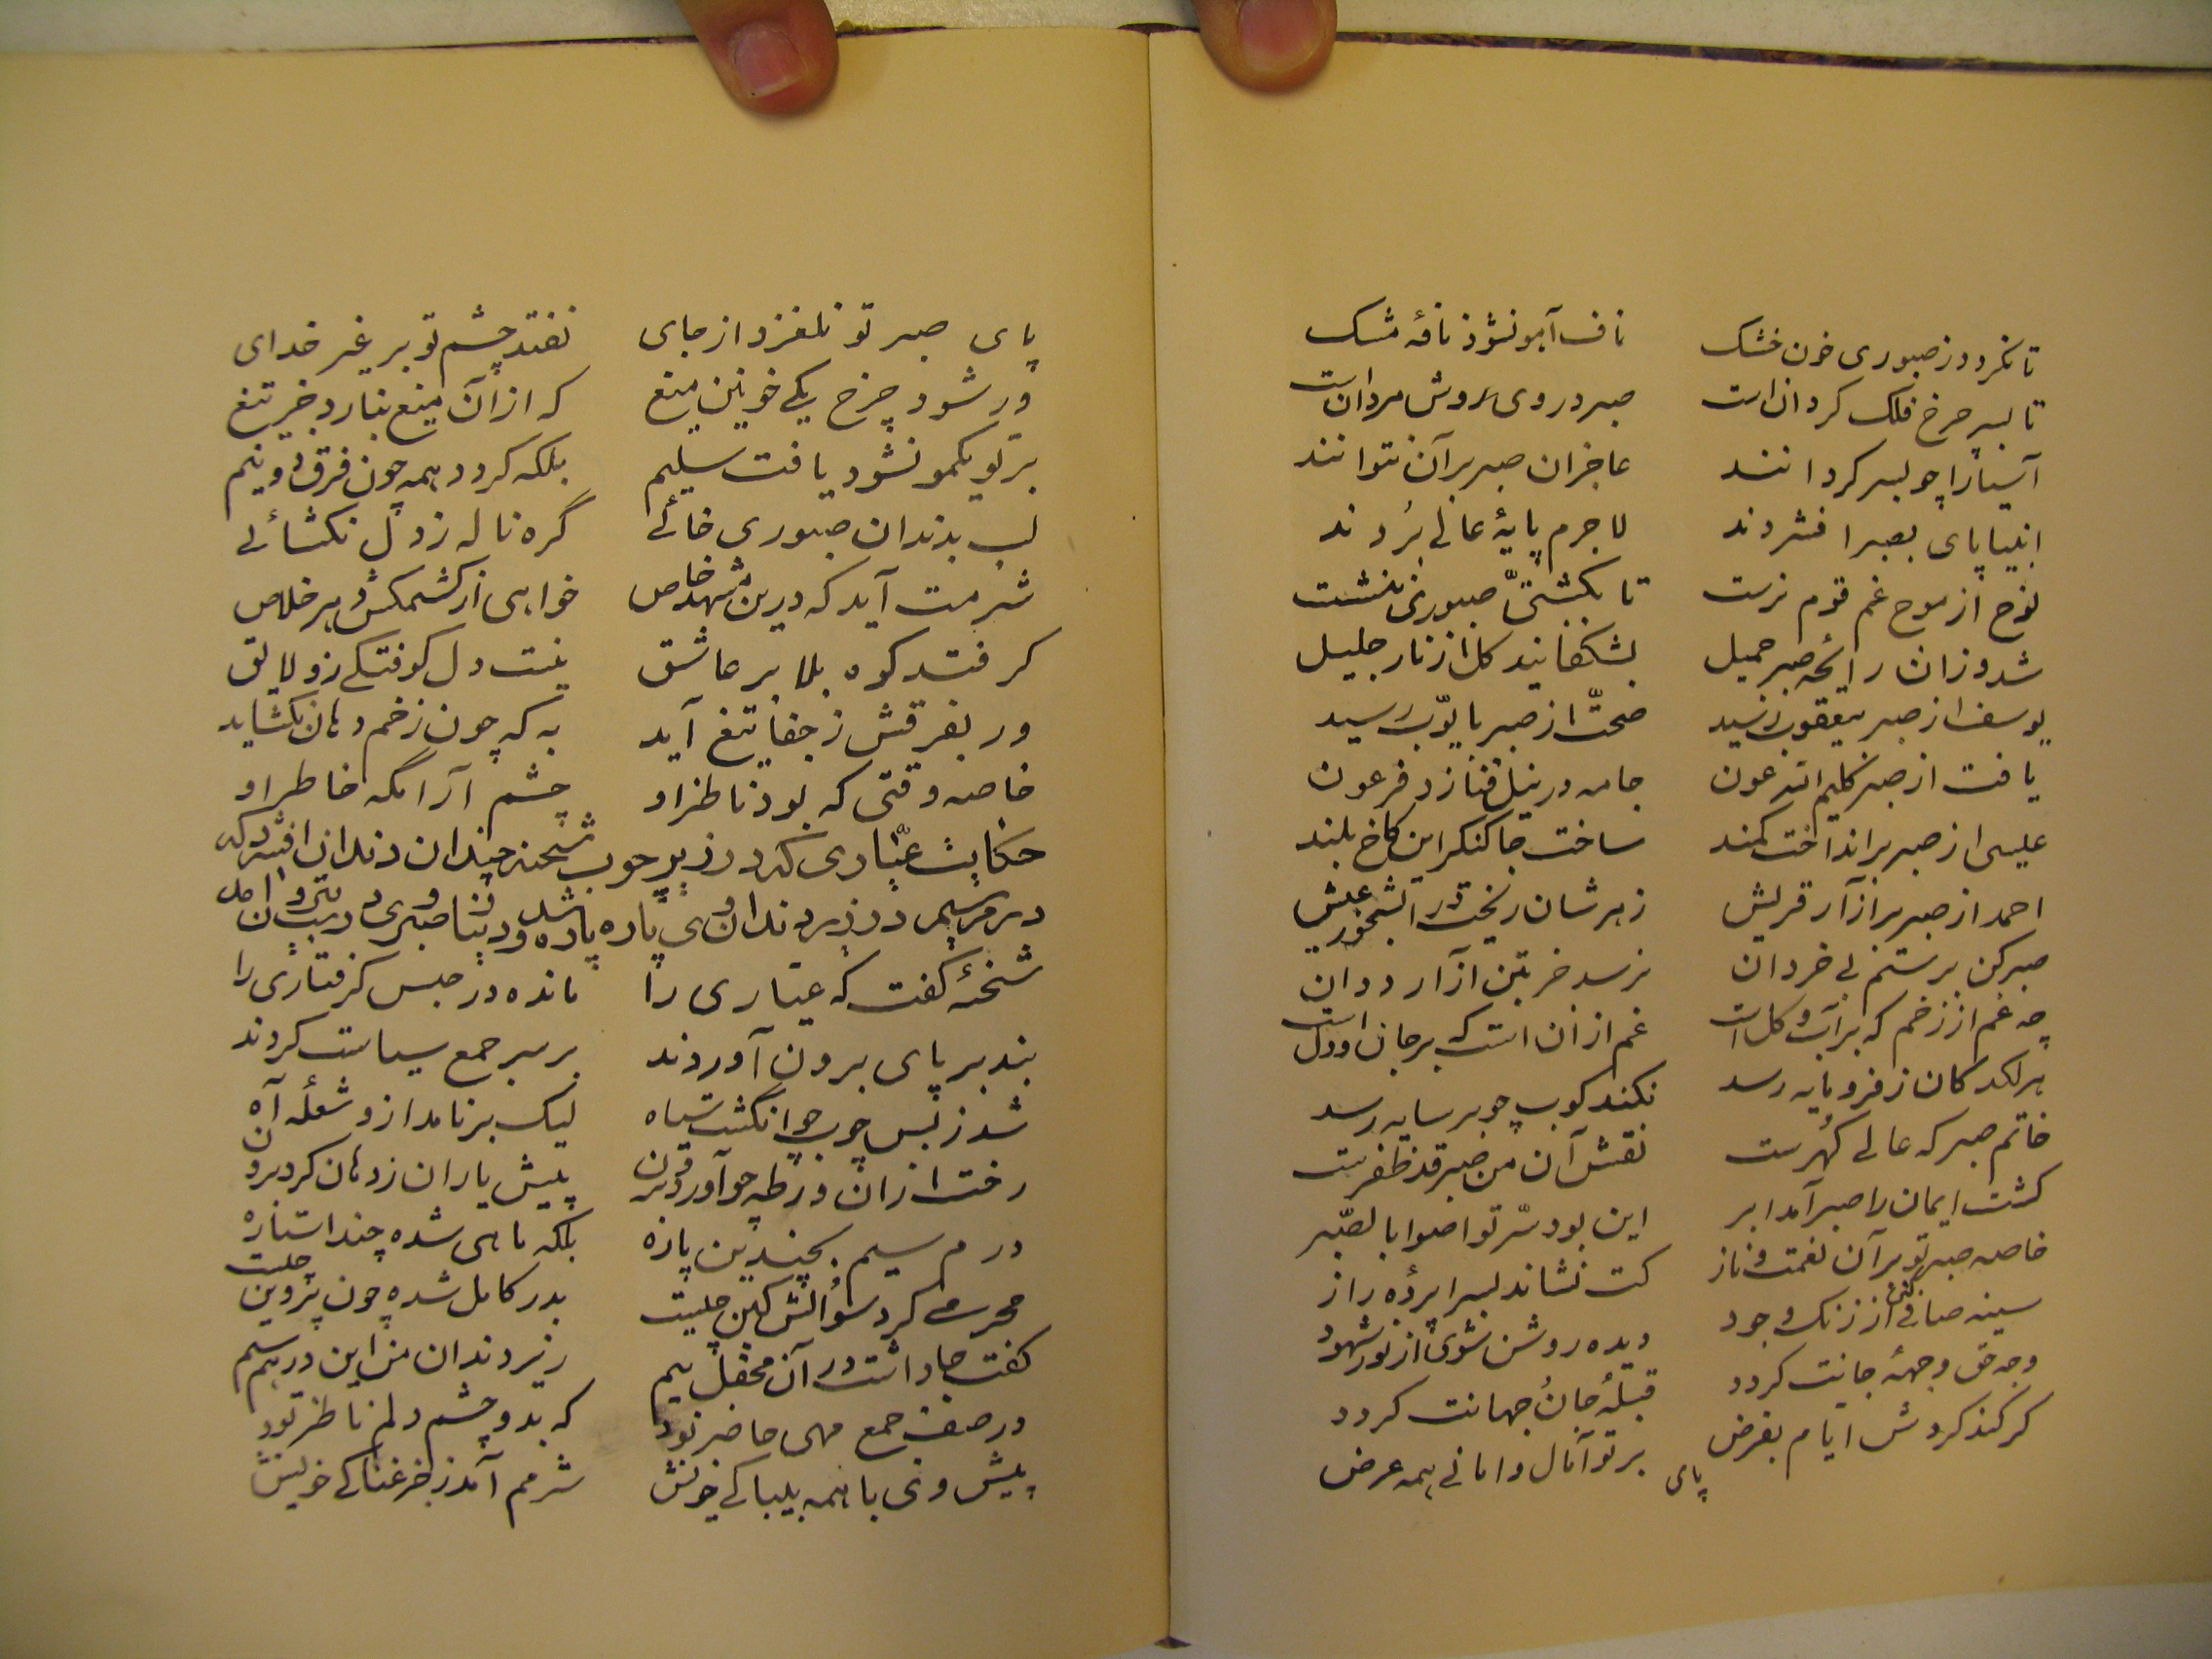 تا نکردد ز صبوری خون خشک ناف آهو نشود نافهٔ مشک
تا بسپر چرخ فلک کردان است صبر در وی روش مردان است
آسیا را چو بسر کردانند عاجزان صبر بر آن نتوانند
انبیا پای بصبر افشردند لاجرم پایهٔ عالی بردند
نوح از موج غم قوم نرست تا بکشتیّ صبوری ننشست
شد وزان رایحهٔ صبر جمیل بشکفانید کل از نار جلیل
یوسف از صبر بیعقوب رسید صحّت از صبر بایّوب رسید
یافت از صبر کلیم اندر عون جامه در نیل فنا زد فرعون
عیسی از صبر برانداخت کمند ساخت جا کنکر این کاخ بلند
احمد از صبر بر آزار قریش زهرشان ریخت در آبشخور عیش
صبر کن بر ستم بی خردان نرسد خر بتن آزار ددان
چه غم از زخم که بر آب و کل است غم از آن است که بر جان و دل است
هر لکد کان ز فرومایه رسد نکند کوب چو بر سایه رسد
خاتم صبر که عالی کهرست نقش آن من صبر قد ظفرست
کشت ایمان را صبر آمد ابر این بود سرّ تواصوا بالصّبر
خاصه صبر تو بر آن نغمت و ناز کت نشاند بسراپردهٔ راز
سینه صافی کنی از زنک وجود دیده روشن شوی از نور شهود
وجه حق وجههٔ جانت کردد قبلهٔ جان جهانت کردد
کر کند کردش ایام بفرض بر تو آمال و امانی همه عرض
پای
پای صبر تو نلغزد از جای نفتد چشم تو بر غیر خدای
ور شود چرخ یکی خونین میغ که از آن میغ نبارد جز تیغ
بر تو یکمو نشود یافت سلیم بلکه کردد همه چون فرق دو نیم
لب بدندان صبوری خائی گره ناله ز دل نکشائی
شرمت آید که درین مشهد خاص خواهی از کشمکش دهر خلاص
کر فتد کوه بلا بر عاشق نیست دل کوفتکی زو لایق
ور بفرقش ز جفا تیغ آید به که چون زخم دهان نکشاید
خاصه وقتی که بود ناظر او چشم آرامگه خاطر او
حکایت عیّاری که در زیر چوب شحنه چندان دندان افشرد که
درم سیم در زیر دندان وی پاره پاره شد
شحنهٔ کفت که عیّاری را مانده در حبس کرفتاری را
بند بر پای برون آوردند بر سر جمع سیاست کردند
شد ز بس چوب چو انکشت سیاه لیک بر نامد ازو شعلهٔ آه
رخت از آن ورطه چو آورد برون پیش یاران ز دهان کرد برون
درم سیم بچندین پاره بلکه ماهی شده چند استاره
محرمی کرد سؤالش کین چیست بدر کامل شده چون پروین چیست
کفت جا داشت در آن محفل بیم زیر دندان من این درهم سیم
در صف جمع مهی حاضر بود که بدو چشم دلم ناظر بود
پیش وی با همه بیباکی خویش شرمم آمد ز جزعناکی خویش